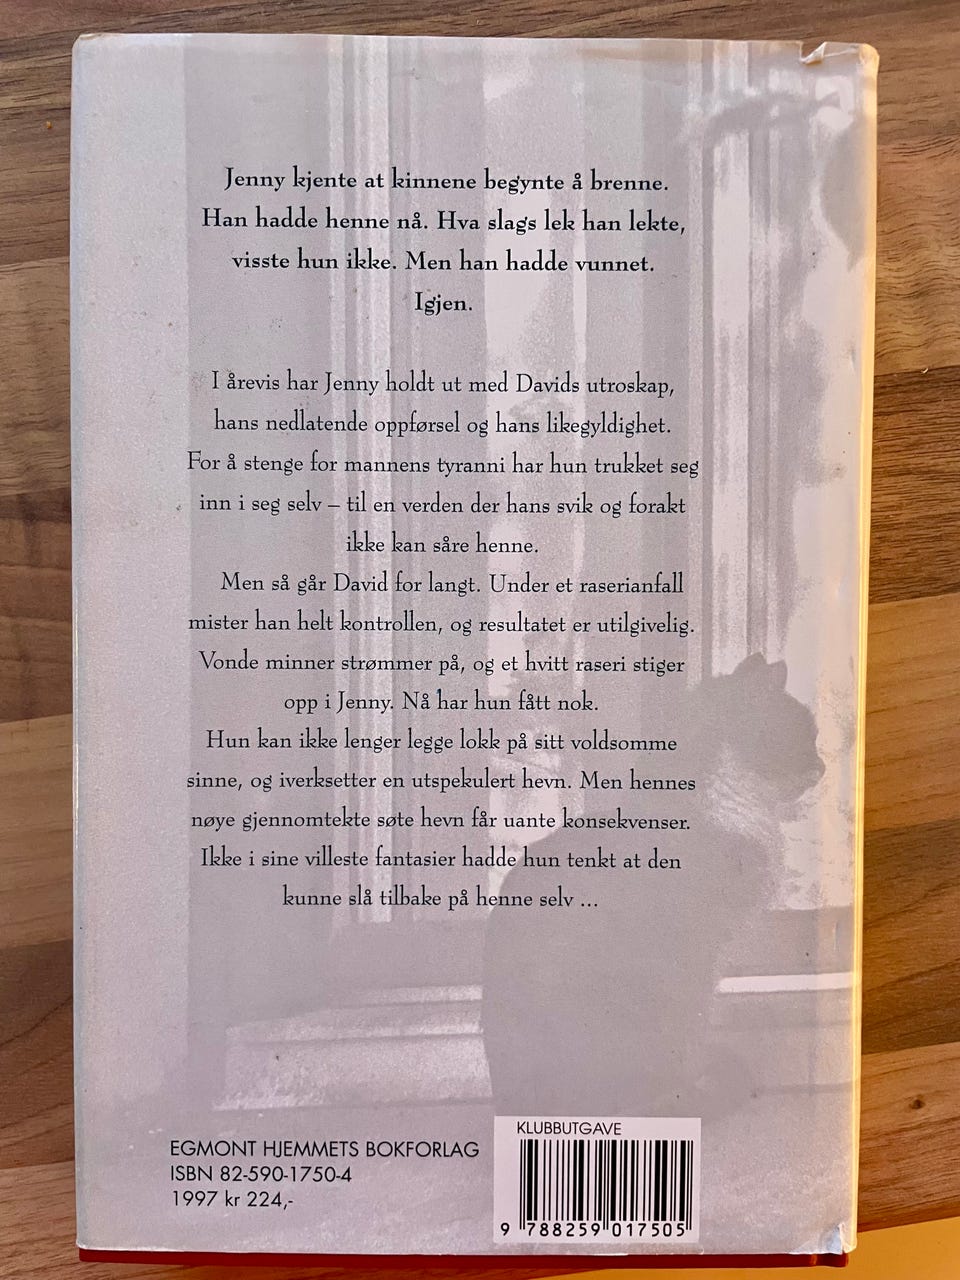 Jenny kjente at kinnene begynte å brenne.
Han hadde henne nå. Hva slags lek han lekte,
visste hun ikke. Men han hadde vunnet.
Igjen.
I årevis har Jenny holdt ut med Davids utroskap,
hans nedlatende oppførsel og hans likegyldighet.
For å stenge for mannens tyranni har hun trukket seg
inn i seg selv – til en verden der hans svik og forakt
ikke kan såre henne.
Men så går David for langt. Under et raserianfall
mister han helt kontrollen, og resultatet er utilgivelig.
Vonde minner strømmer på, og et hvitt raseri stiger
opp i Jenny. Nå har hun fått nok.
Hun kan ikke lenger legge lokk på sitt voldsomme
sinne, og iverksetter en utspekulert hevn. Men hennes
nøye gjennomtekte søte hevn får uante konsekvenser.
Ikke i sine villeste fantasier hadde hun tenkt at den
kunne slå tilbake på henne selv ...
EGMONT HJEMMETS BOKFORLAG
ISBN 82-590-1750-4
1997 kr 224,-
KLUBBUTGAVE
9 788259 017505